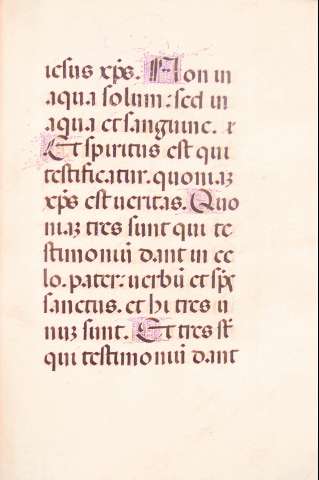 iesus xp̄s. Non in
aqua solum: sed in
aqua et sanguine. ⁊
Et spiritus est qui
testificatur. quoniaꝫ
xp̄s est ueritas. Quo
niaꝫ tres sunt qui te
stimoniū dant in ce
lo. pater: uerbū et sp̄s
sanctus. et hi tres u
nuꝫ sunt. Et tres st̄
qui testimoniū dant